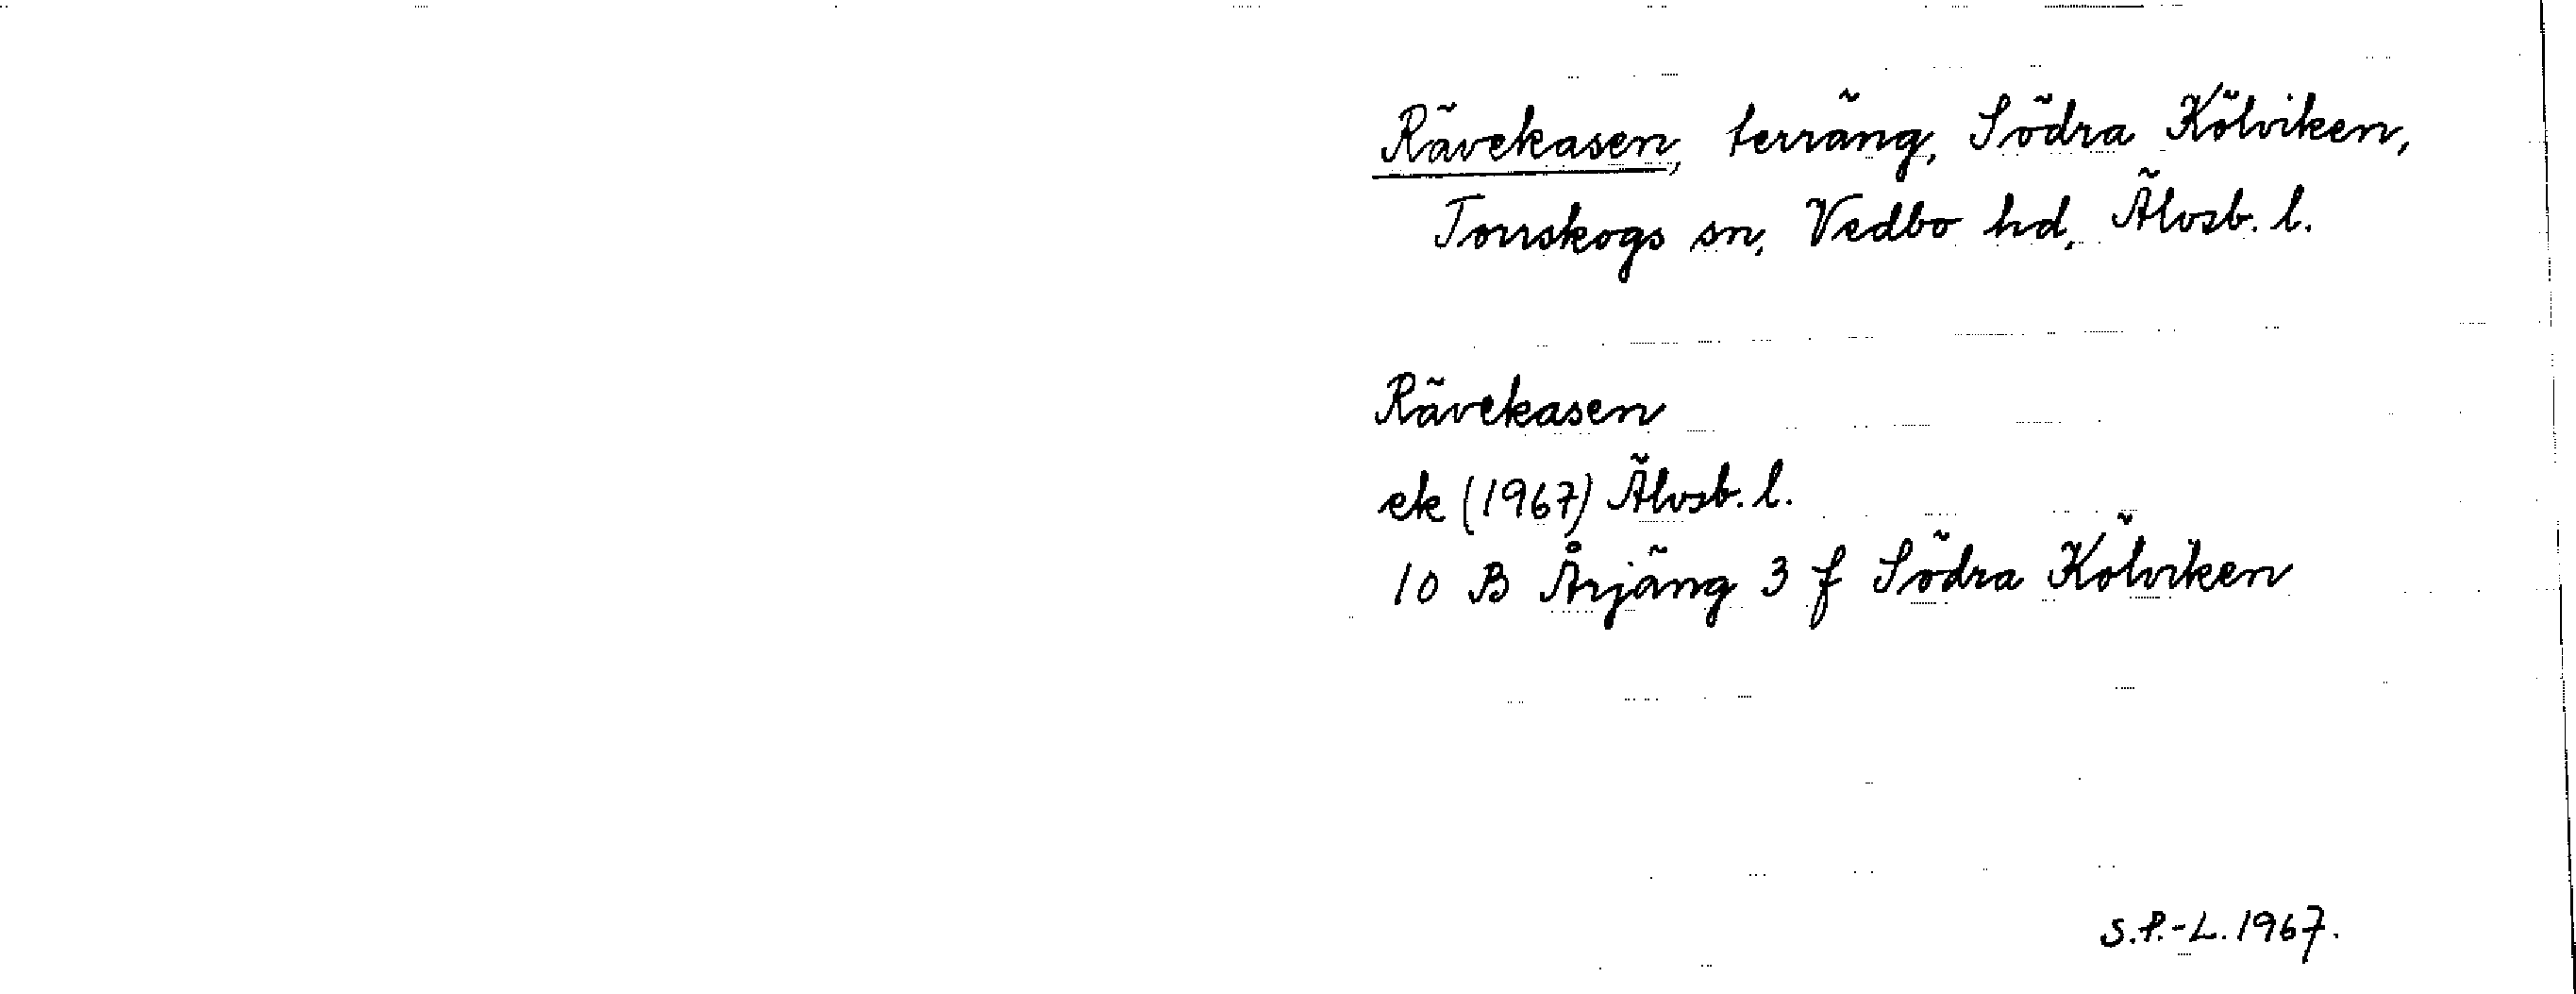 Rävekasen, terräng, Södra Kölviken,
Torrskogs sn, Vedbo hd, Älvsb. l.
Rävekasen
ek (1967) Älvsb. l.
10 B Årjäng 3 f Södra Kölviken
S.P.-L. 1967.